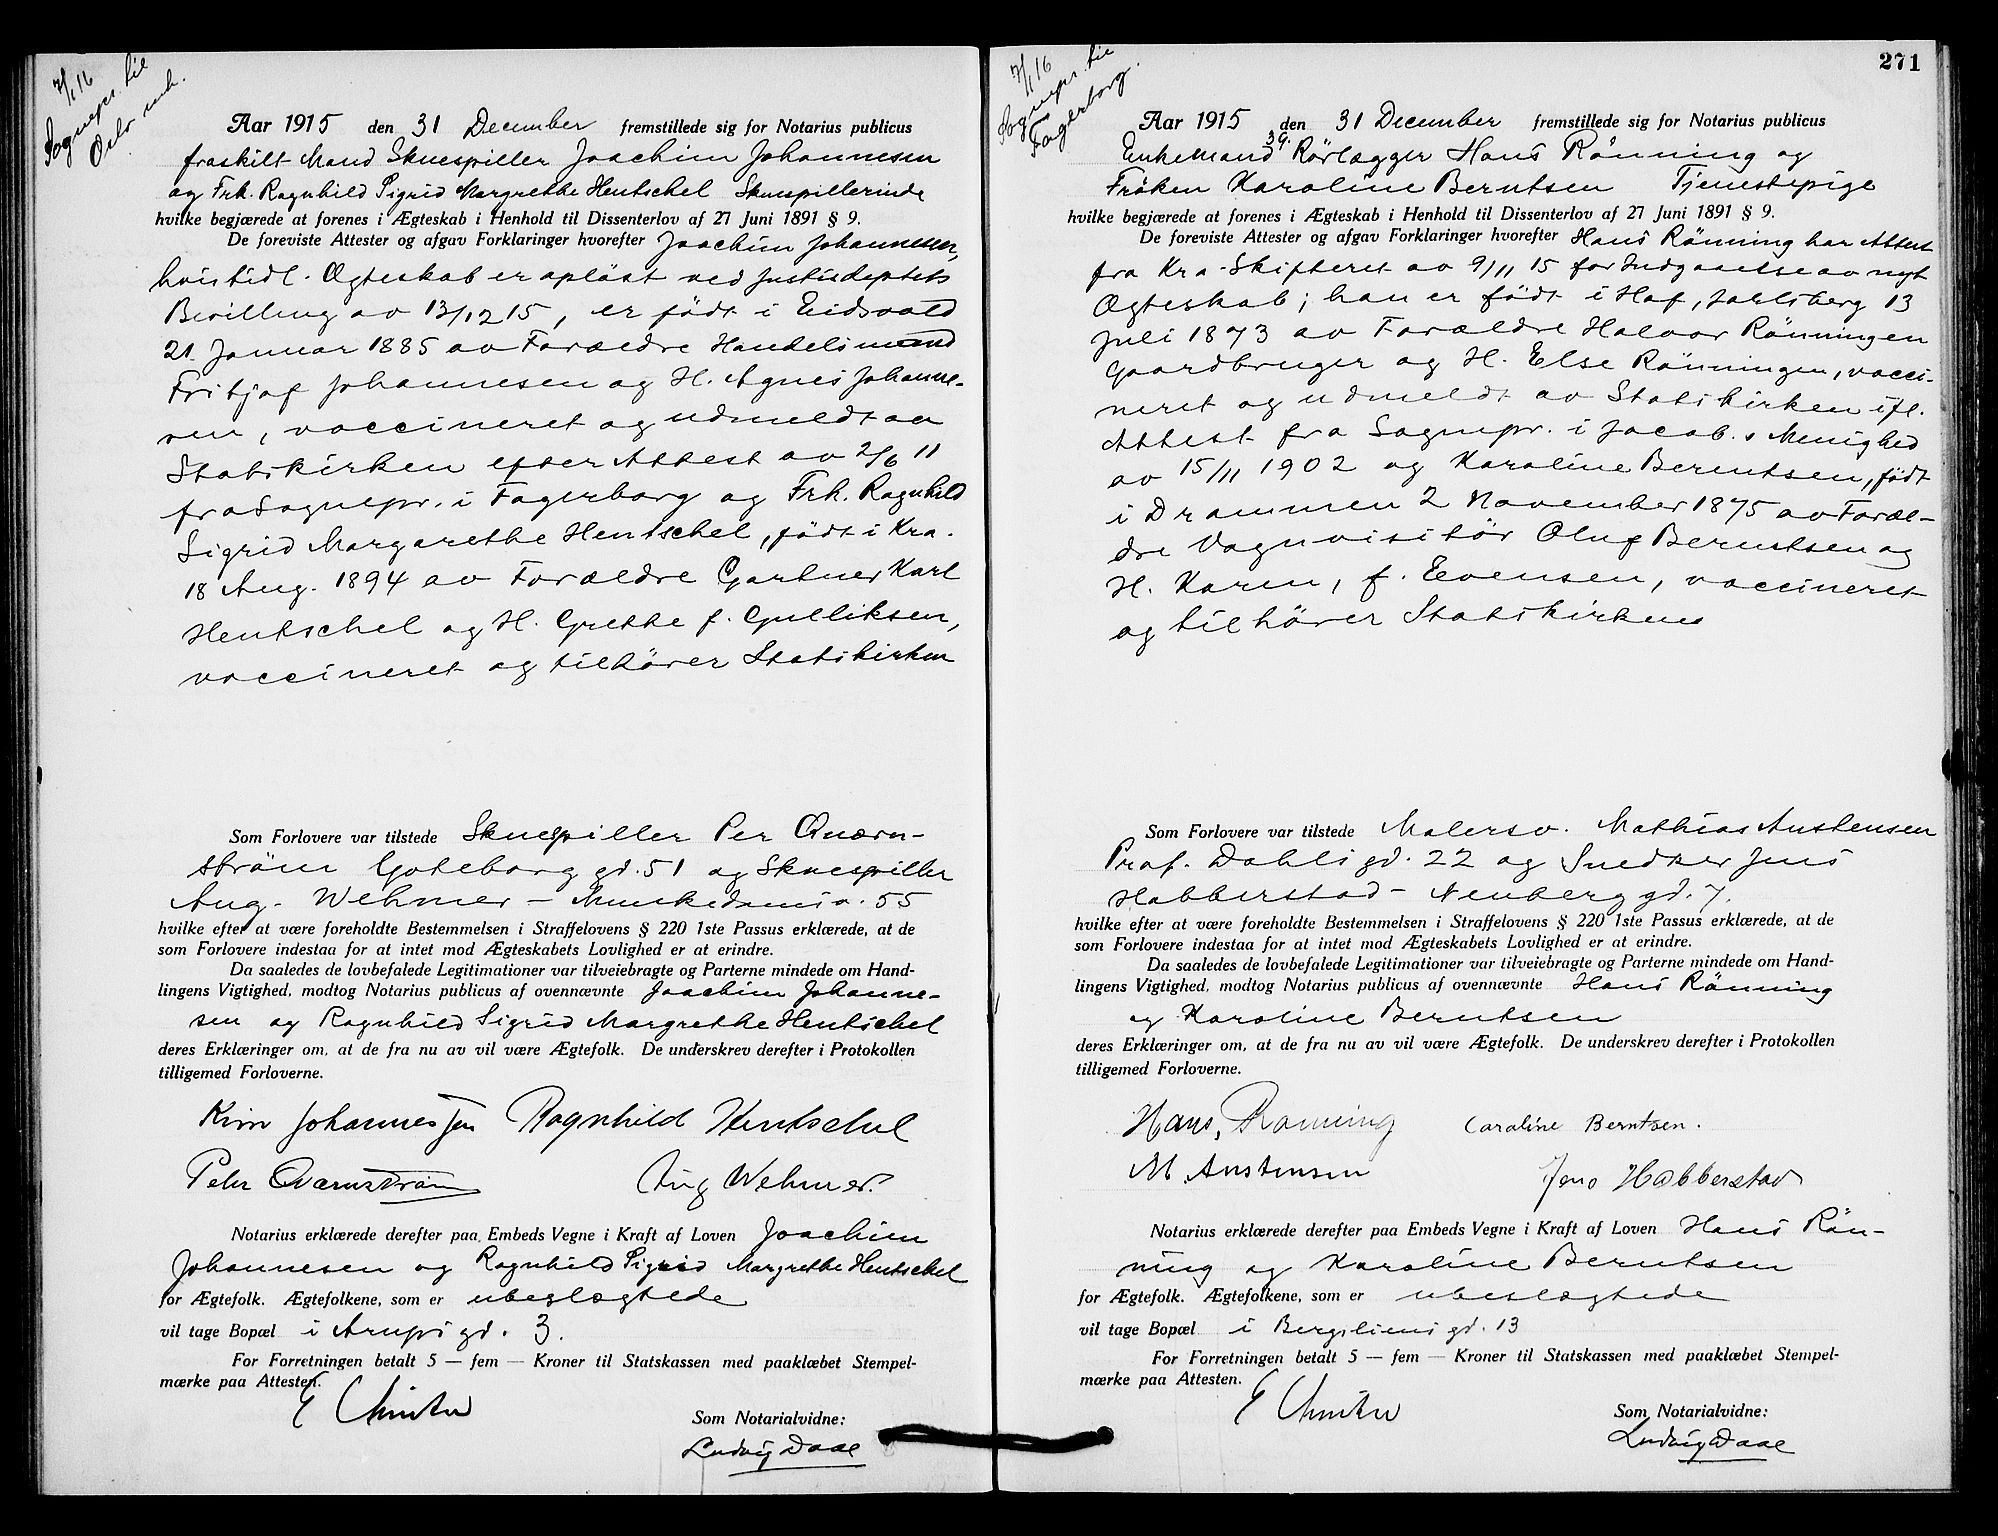 7/1 16
Sognepr. til
Oslo mh.
Aar 1915 den 31 December fremstillede sig for Notarius publicus
fraskilt Mand Skuespiller Joachim Johannesen
og Frk. Ragnhild Sigrid Margrethe Hentschel Skuespillerinde
hvilke begjærede at forenes i Ægteskab i Henhold til Dissenterlov af 27 Juni 1891 § 9.
De foreviste Attester og afgav Forklaringer hvorefter Joachim Johannesen,
hvis tidl. Ægteskab er opløst ved Justisdeptets
Bevilling av 13/12 15, er født i Eidsvold
21. Januar 1885 av Forældre Handelsmand
Fritjof Johannesen og H. Agnes Johanne-
sen, vaccineret og udmeldt av
Statskirken efter Attest av 2/6 11
fra Sognepr. i Fagerborg og Frk. Ragnhild
Sigrid Margarethe Hentschel, født i Kra.
18 Aug. 1894 av Forældre Gartner Karl
Hentschel og H. Grethe f. Gulliksen,
vaccineret og tilhører Statskirken
Som Forlovere var tilstede Skuespiller Per Qværn-
strøm Goteborg gd. 51 og Skuespiller
Aug. Wehmer – Munkedamsv. 55
hvilke efter at være foreholdte Bestemmelsen i Straffelovens § 220 1ste Passus erklærede, at de
som Forlovere indestaa for at intet mod Ægteskabets Lovlighed er at erindre.
Da saaledes de lovbefalede Legitimationer var tilveiebragte og Parterne mindede om Hand-
lingens Vigtighed, modtog Notarius publicus af ovennævnte Joachim Johanne-
sen og Ragnhild Sigrid Margrethe Hentschel
deres Erklæringer om, at de fra nu av vil være Ægtefolk. De underskrev derefter i Protokollen
tilligemed Forloverne.
Kim Johannessen Ragnhild Hentschel
Pehr Qværnstrøm Aug Wehmer.
Notarius erklærede derefter paa Embeds Vegne i Kraft af Loven Joachim
Johannesen og Ragnhild Sigrid Margrethe Hentschel
for Ægtefolk. Ægtefolkene, som er ubeslægtede
vil tage Bopæl i Arupsgd. 3.
For Forretningen betalt 5 — fem — Kroner til Statskassen med paaklæbet Stempel-
mærke paa Attesten.
Som Notarialvidne:
Ludvig Daae
271
7/1 16
Sognepr. til
Fagerborg.
Aar 1915 den 31 December fremstillede sig for Notarius publicus
Enkemand 3 G. Rørlægger Hans Rønning og
Frøken Karoline Berntsen Tjenestepige
hvilke begjærede at forenes i Ægteskab i Henhold til Dissenterlov af 27 Juni 1891 § 9.
De foreviste Attester og afgav Forklaringer hvorefter Hans Rønning har Attest
fra Kra. Skifteret av 9/11 15 for Indgaaelse av nyt
Ægteskab; han er født i Hof, Jarlsberg 13
Juli 1873 av Forældre Halvor Rønningen
Gaardbruger og H. Else Rønningen, vacci-
neret og udmeldt av Statskirken ifl.
Attest fra Sognepr. i Jacob.s Menighed
av 15/11 1902 og Karoline Berntsen, født
i Drammen 2 November 1875 av Foræl-
dre Vognvisitør Oluf Berntsen og
H. Karen, f. Evensen, vaccineret
og tilhører Statskirken
Som Forlovere var tilstede Malersv. Mathias Austensen
Prof. Dahlsgd. 22 og Snedker Jens
Habberstad – Neuberggd. 7.
hvilke efter at være foreholdte Bestemmelsen i Straffelovens § 220 1ste Passus erklærede, at de
som Forlovere indestaa for at intet mod Ægteskabets Lovlighed er at erindre.
Da saaledes de lovbefalede Legitimationer var tilveiebragte og Parterne mindede om Hand-
lingens Vigtighed, modtog Notarius publicus af ovennævnte Hans Rønning
og Karoline Berntsen
deres Erklæringer om, at de fra nu av vil være Ægtefolk. De underskrev derefter i Protokollen
tilligemed Forloverne.
Hans, Rønning Caroline Berntsen.
M. Austensen Jens Habberstad
Notarius erklærede derefter paa Embeds Vegne i Kraft af Loven Hans Røn-
ning og Karoline Berntsen
for Ægtefolk. Ægtefolkene, som er ubeslægtede
vil tage Bopæl i Bergsliensgd. 13
For Forretningen betalt 5 — fem — Kroner til Statskassen med paaklæbet Stempel-
mærke paa Attesten.
Som Notarialvidne:
Ludvig Daae